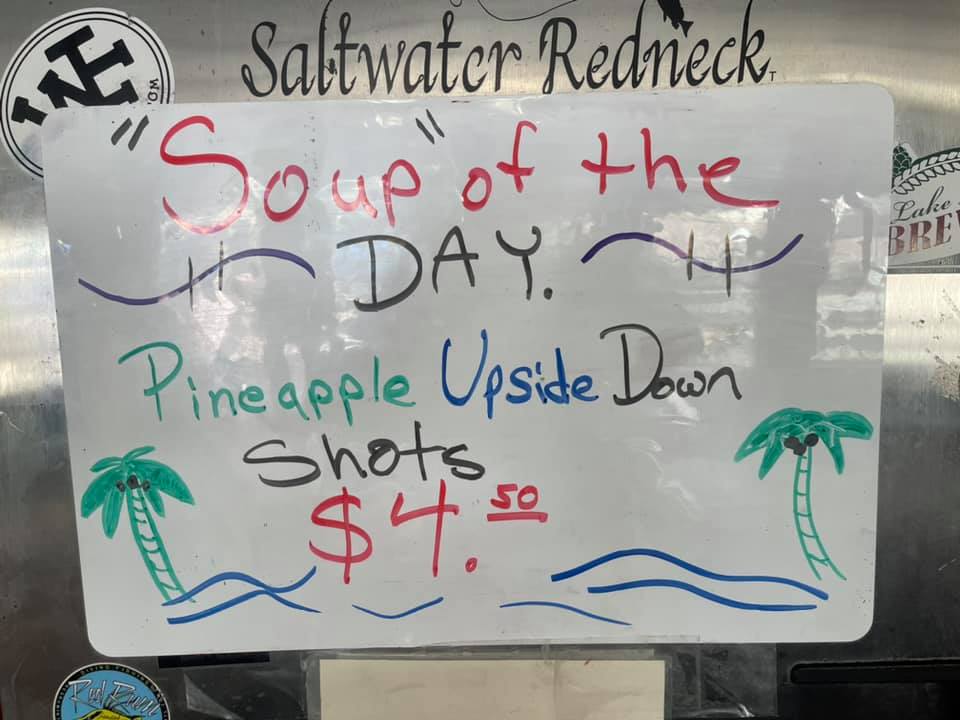 Saltwater Redneck
"Soup" of the
DAY.
Pineapple Upside Down
Shots
$4.50
Lake
BREW
Reel Rum